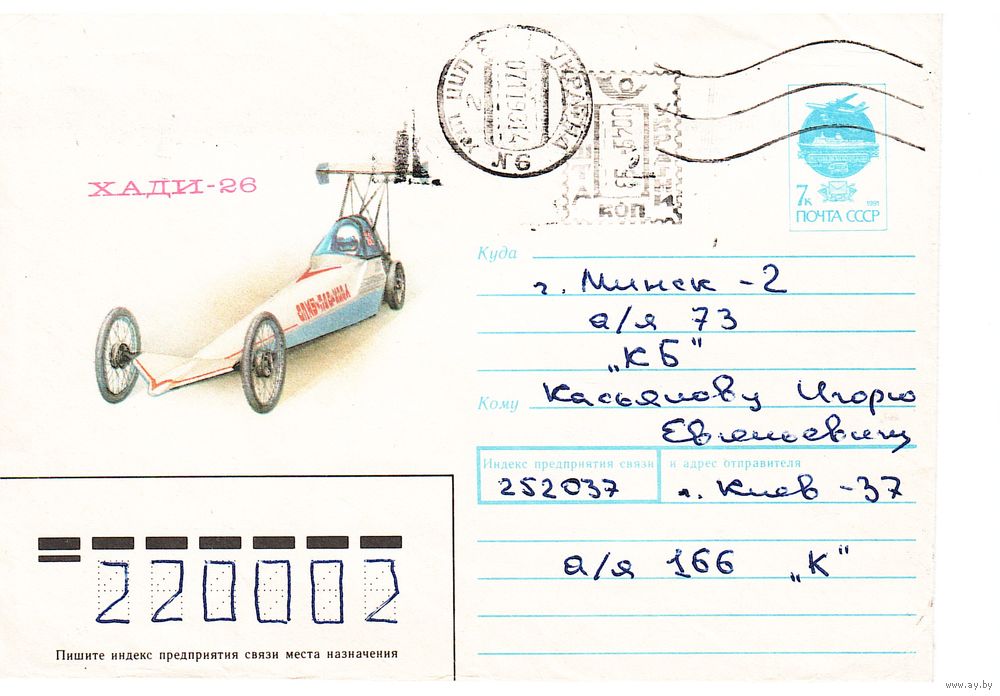 ХАДИ-26
УКРАИНА
№6
коп
7к
1991
ПОЧТА СССР
Куда
г. Минск -2
а/я 73
„КБ"
Кому Касьянову Игорю
Евгеньевичу
Индекс предприятия связи и адрес отправителя
252037 г. Киев -37
а/я 166 „К"
220002
Пишите индекс предприятия связи места назначения
www.ay.by